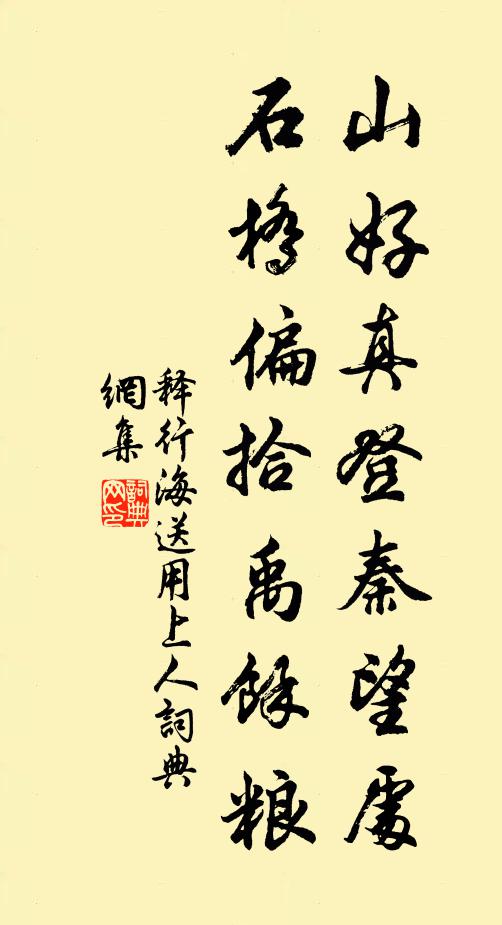 山好真登秦望處
石橋偏拾禹餘粮
釋行海送用上人詞典
網集
詞典
网印